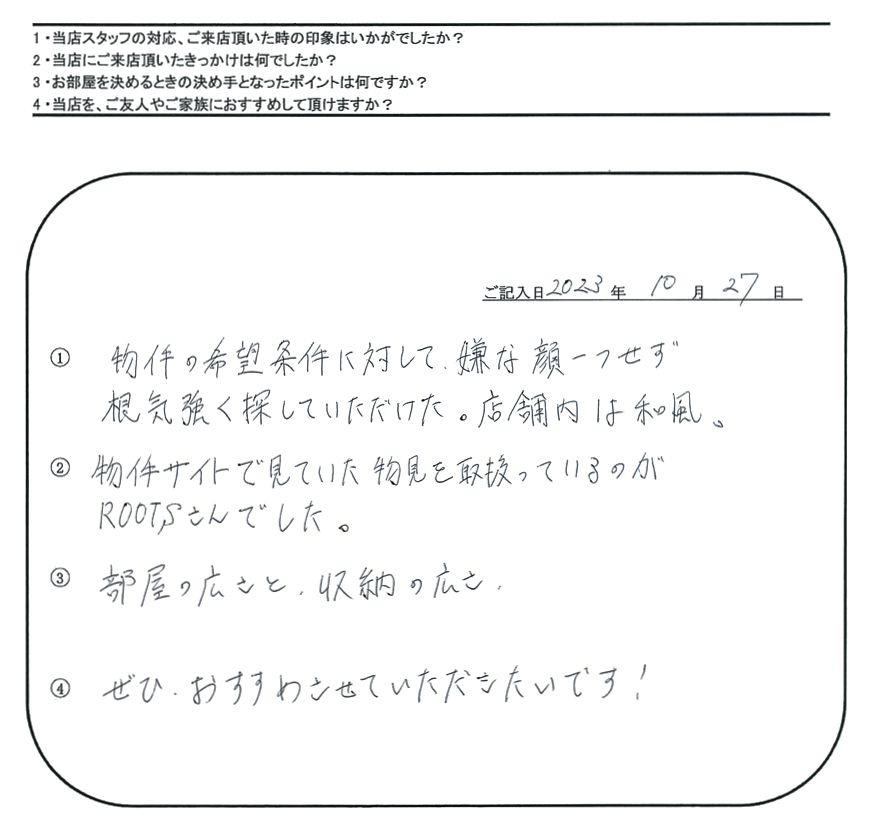 1・当店スタッフの対応、ご来店頂いた時の印象はいかがでしたか？
2・当店にご来店頂いたきっかけは何でしたか？
3・お部屋を決めるときの決め手となったポイントは何ですか？
4・当店を、ご友人やご家族におすすめして頂けますか？
ご記入日2023年 10月 27日
① 物件の希望条件に対して、嫌な顔一つせず
根気強く探していただけた。店舗内は和風。
② 物件サイトで見ていた物見を取扱っているのが
ROOTSさんでした。
③ 部屋の広さと、収納の広さ、
④ ぜひ、おすすめさせていただきたいです！